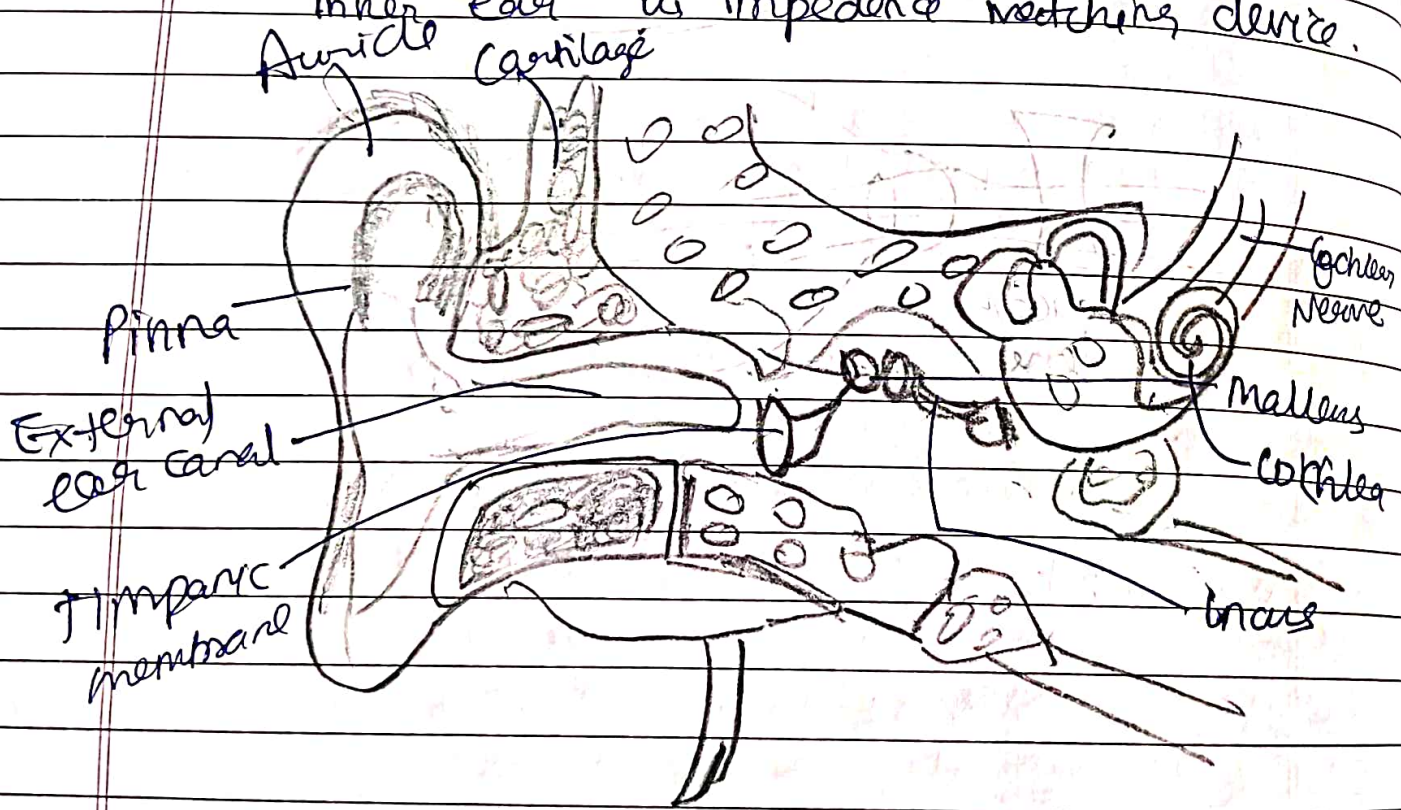 inner ear as impedence matching device.
Auricle
Cartilage
Pinna
External
ear canal
Timpanic
membrane
Cochlear
Nerve
Malleus
Cochlea
Incus